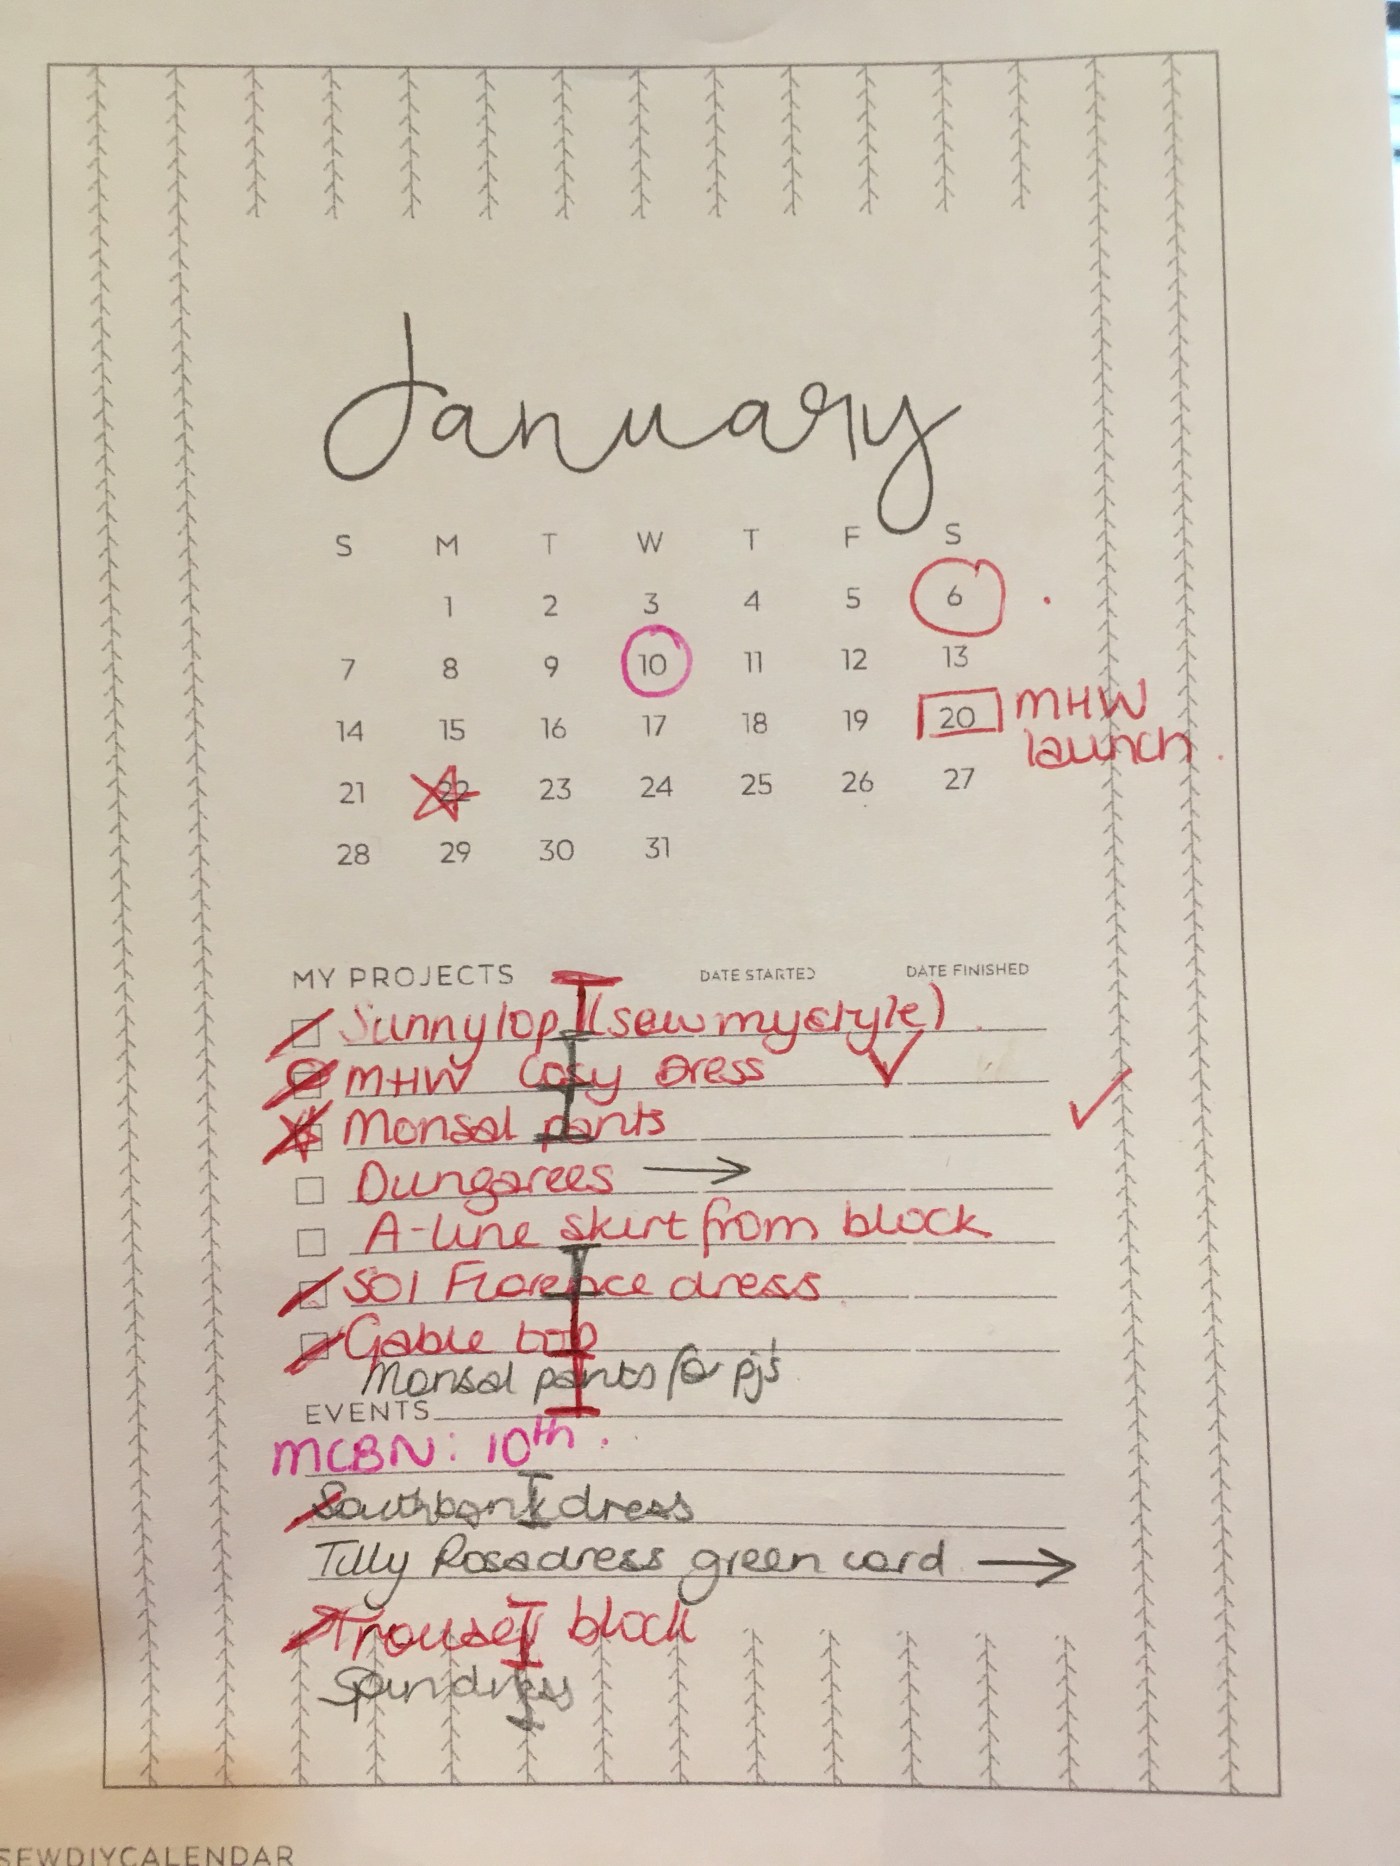 January
S M T W T F S
1 2 3 4 5 6
7 8 9 10 11 12 13
14 15 16 17 18 19 20 MHW
launch
21 22 23 24 25 26 27
28 29 30 31
MY PROJECTS DATE STARTED DATE FINISHED
Sunny top (sew my style)
MHW Cosy Dress
Monsal pants
Dungarees →
A-line skirt from block
SOI Florence dress
Gable top
Monsal pants for pj's
EVENTS
MCBN: 10th.
Southbank dress
Tilly Rosa dress green cord →
Trouser block
Spin dress
SEWDIYCALENDAR